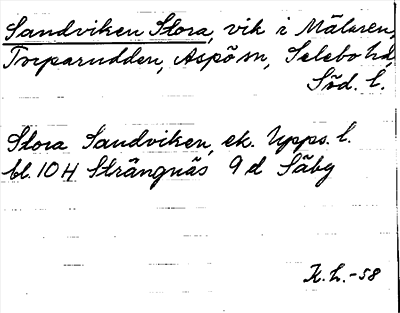 Sandviken Stora, vik i Mälaren,
Torparudden, Aspö sn, Selebo hd,
Söd. l.
Stora Sandviken, ek. Upps. l.
bl. 10 H Strängnäs 9 d Säby
K. L. -58